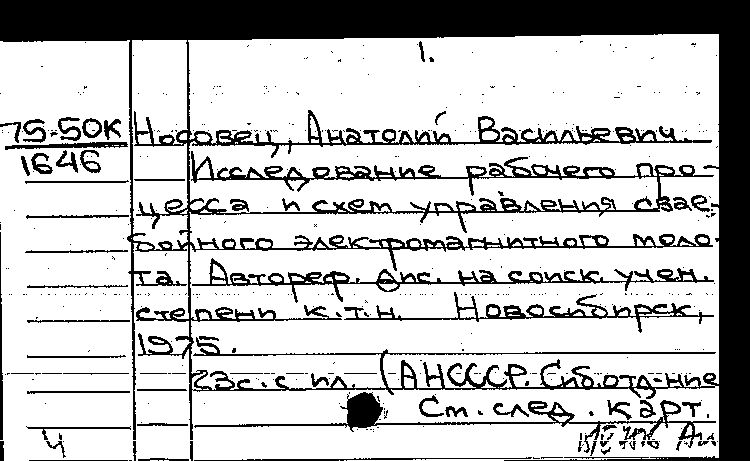 1.
75-50К
1646
Носовец, Анатолий Васильевич.
Исследование рабочего про-
цесса и схем управления свае-
бойного электромагнитного моло-
та. Автореф. дис. на соиск. учен.
степени к.т.н. Новосибирск,
1975.
23с. с ил. (АНСССР. Сиб.отд-ние
См. след. карт.
4